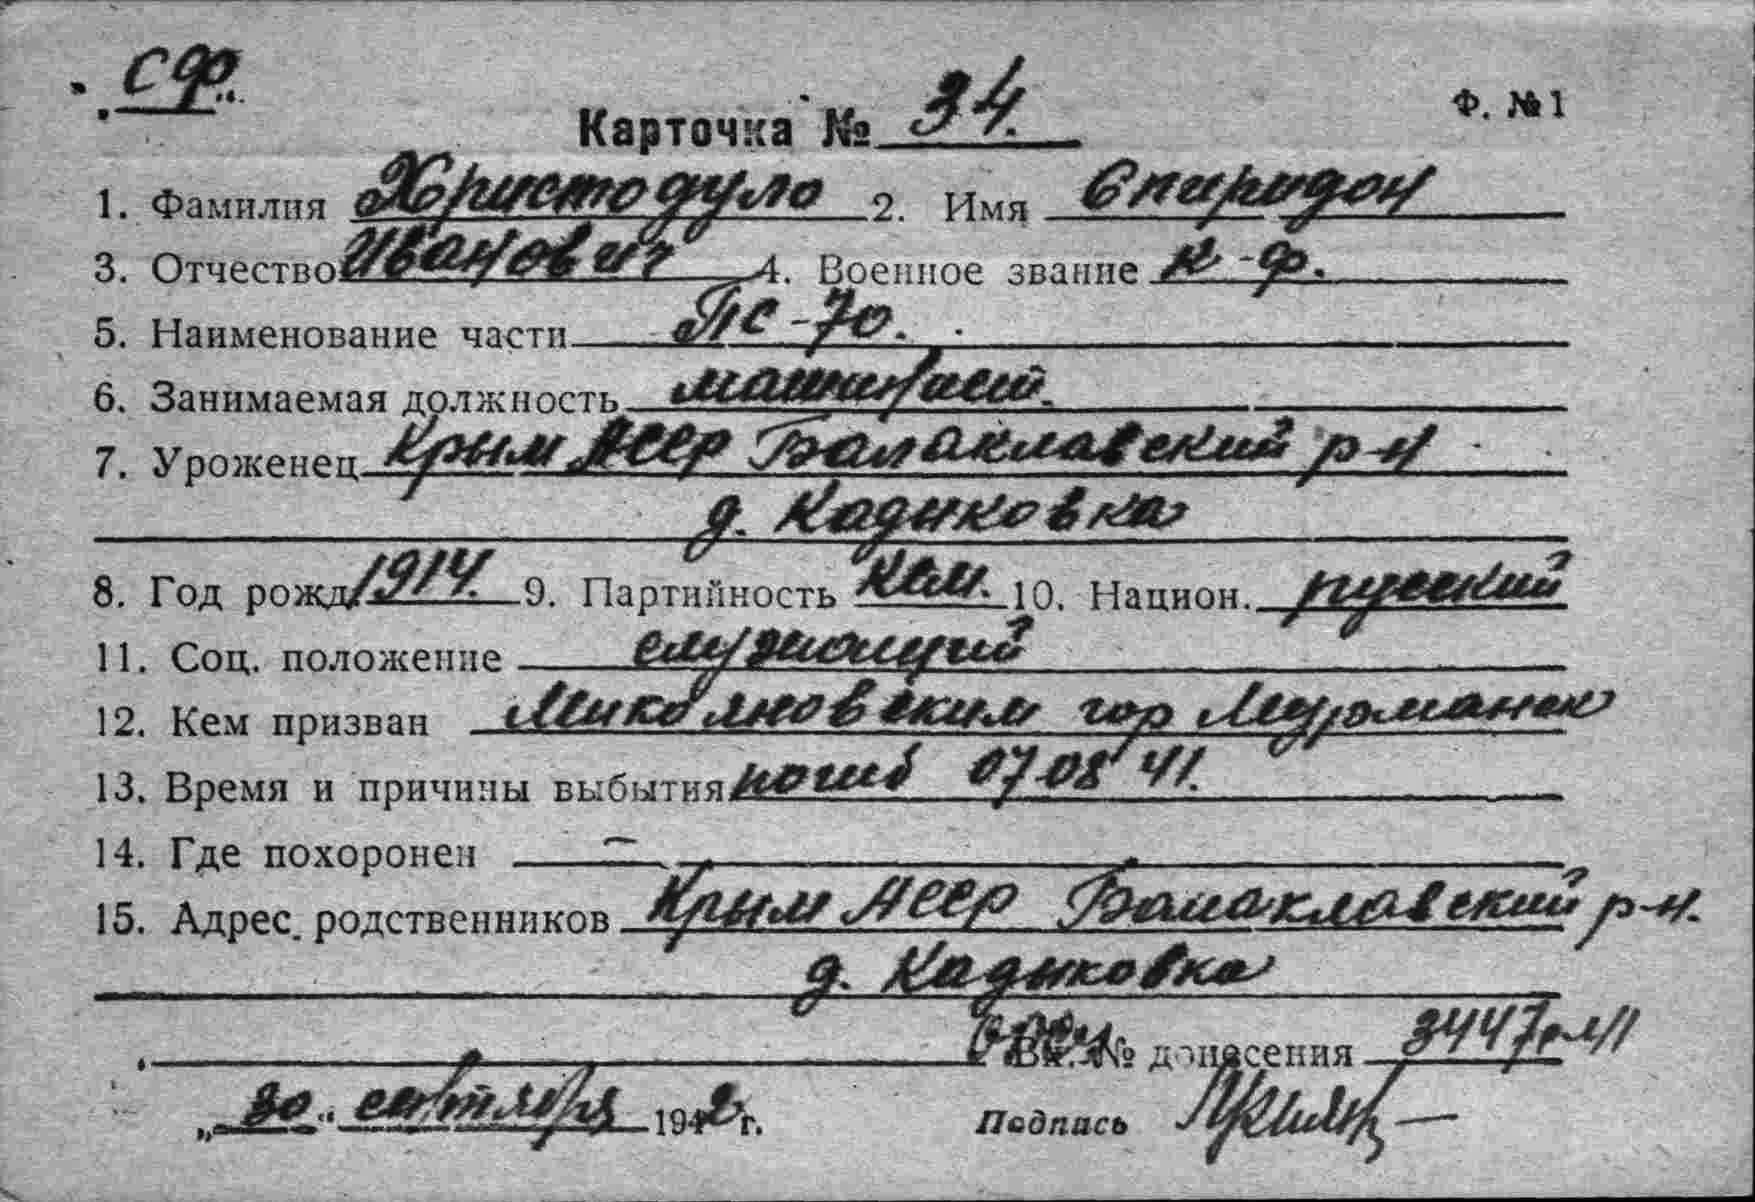 СФ
Карточка № 34. Ф. №1
1. Фамилия Христодуло 2. Имя Спиридон
3. Отчество Иванович 4. Военное звание к-ф.
5. Наименование части ПС-70.
6. Занимаемая должность машинист.
7. Уроженец Крым АССР Балаклавский р-н
д. Кадыковка
8. Год рожд. 1914. 9. Партийность 10. Национ. русский
11. Соц. положение служащий
12. Кем призван Микояновским гор Мурманск
13. Время и причины выбытия погиб 07 08 41.
14. Где похоронен —
15. Адрес родственников Крым АССР Балаклавский р-н.
д. Кадыковка
Вх. № донесения 3447
„30" сентября 1942 г. Подпись